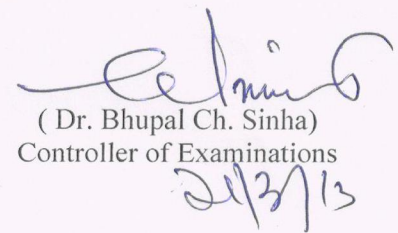 ( Dr. Bhupal Ch. Sinha)
Controller of Examinations
21/3/13